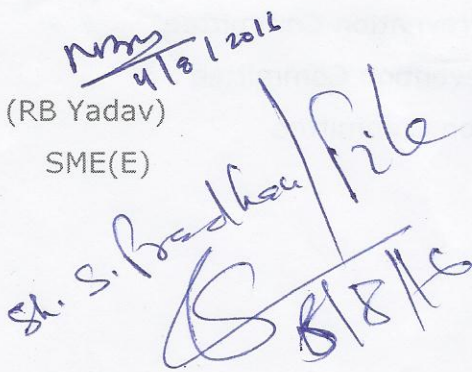 4/8/2016
(RB Yadav)
SME(E)
Sh. S. Pradhan/file
8/8/16